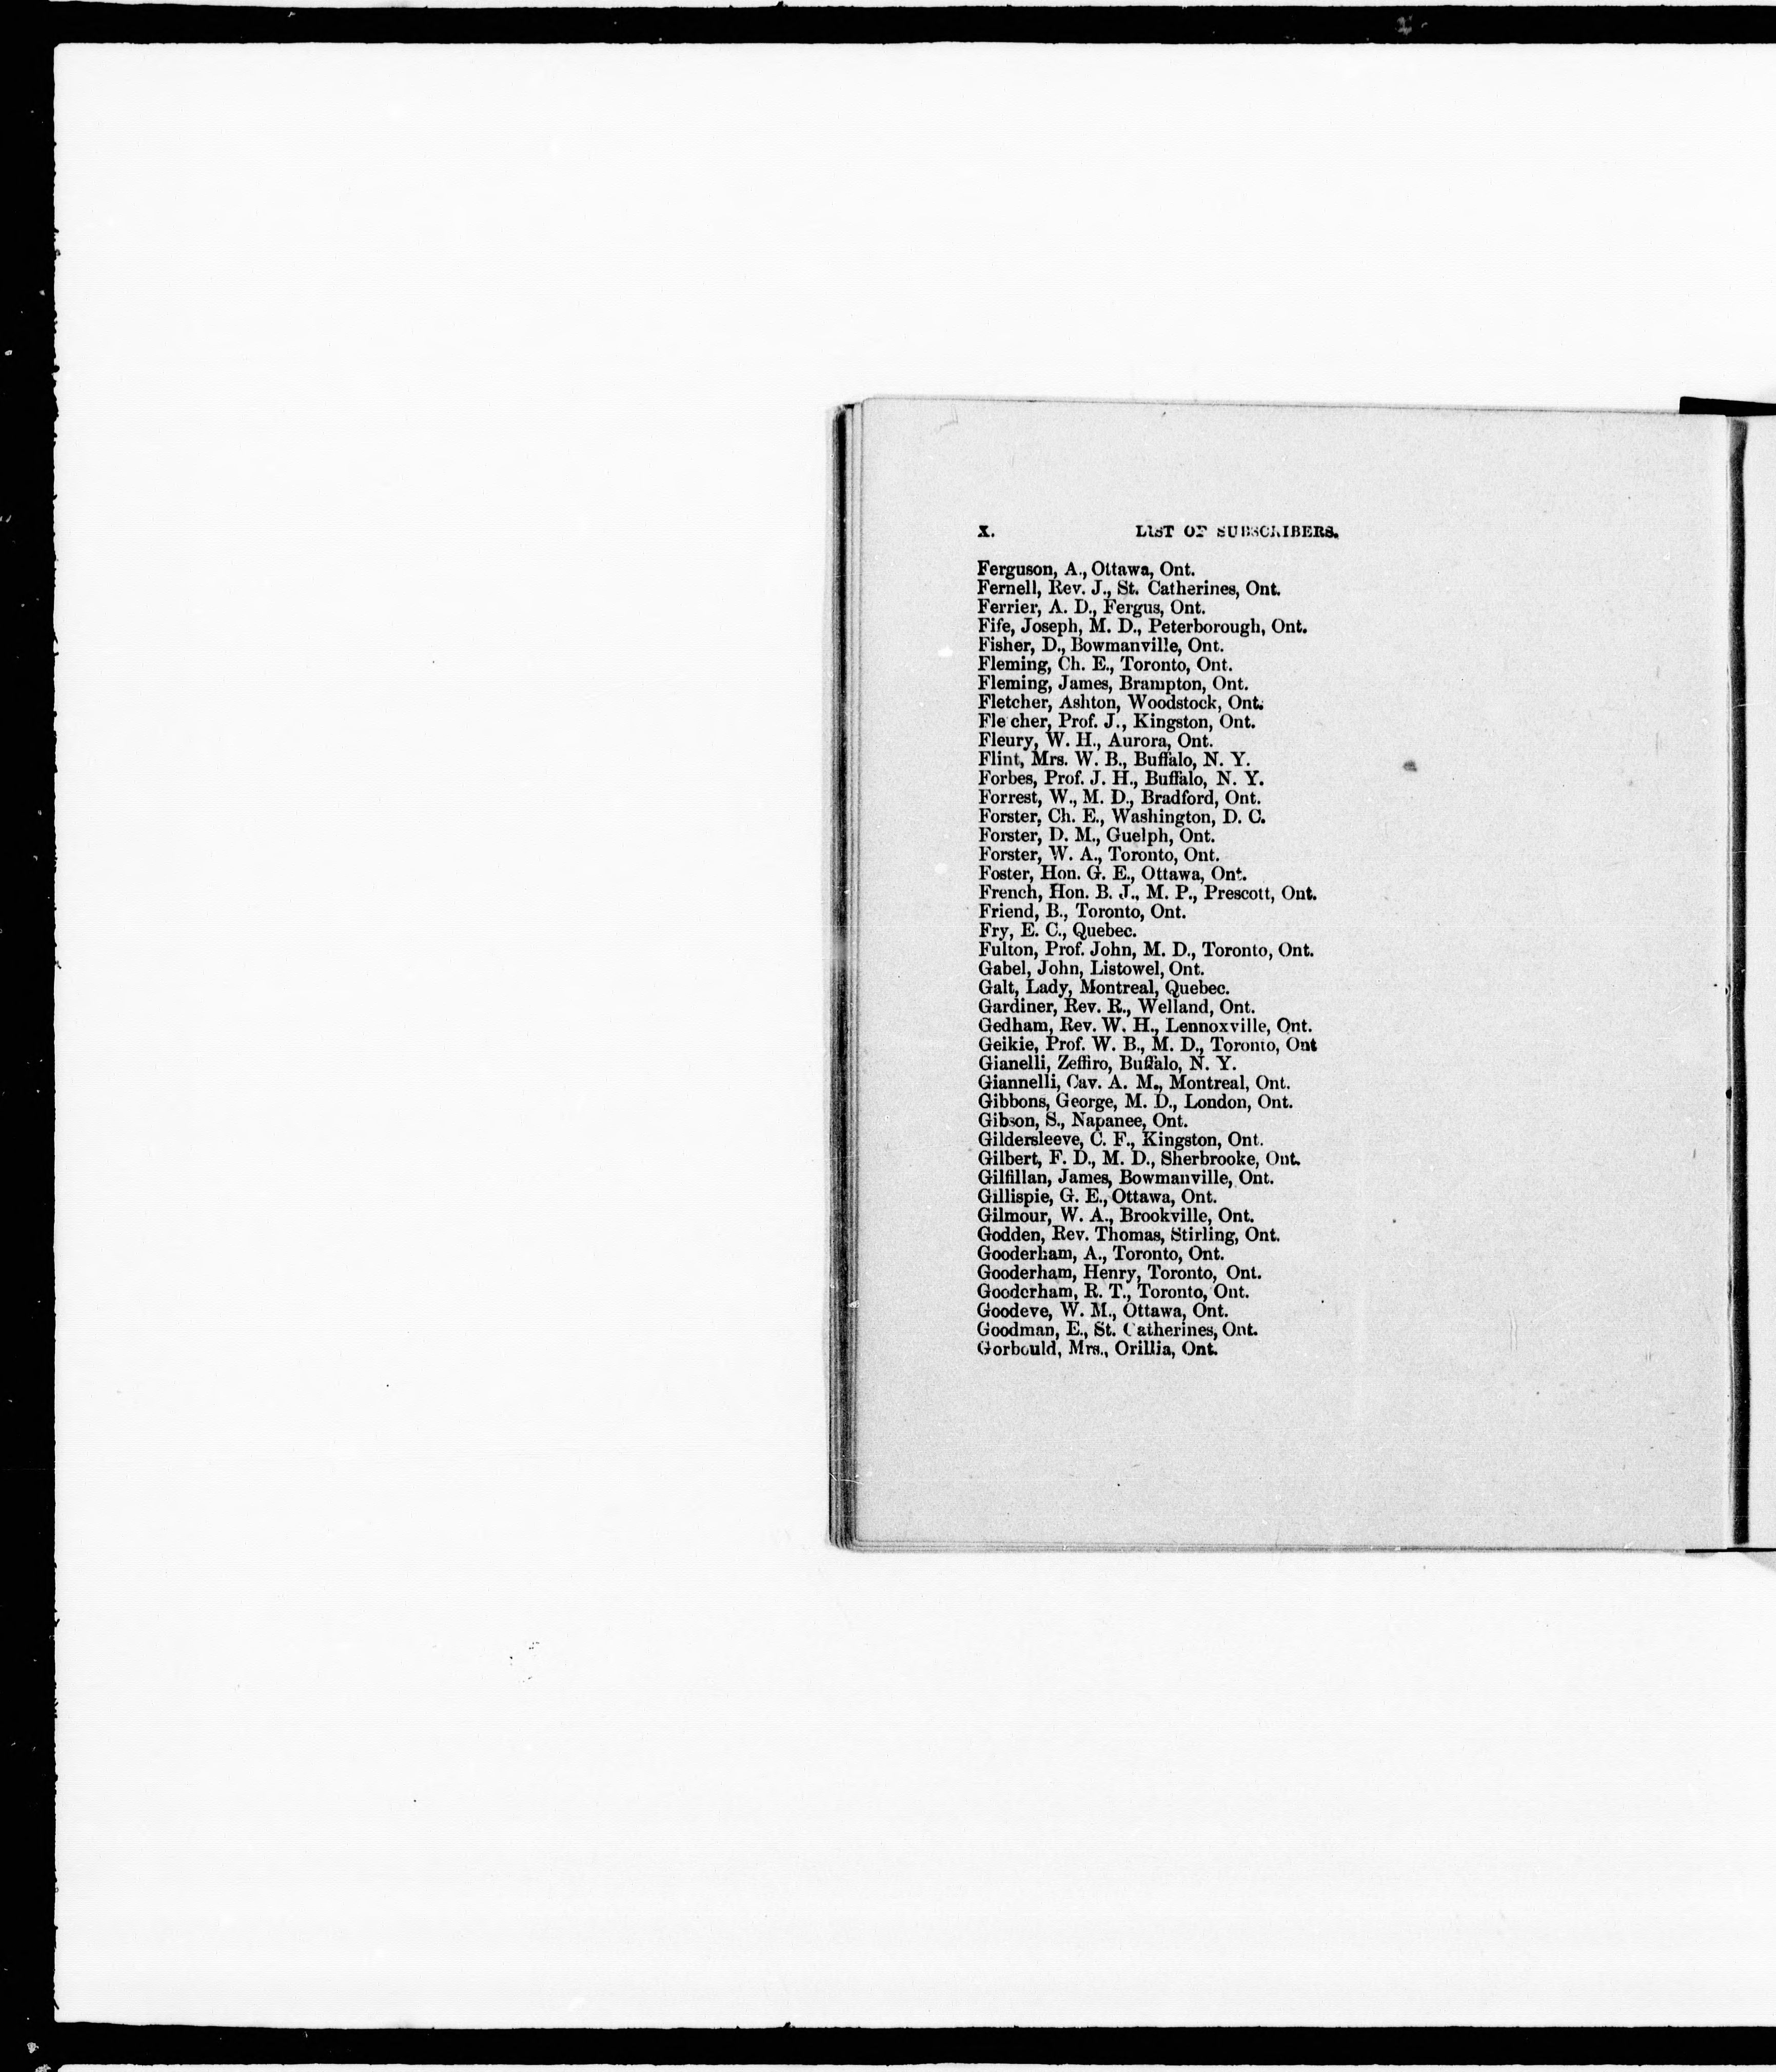 X. LIST OF SUBSCRIBERS.
Ferguson, A., Ottawa, Ont.
Fernell, Rev. J., St. Catherines, Ont.
Ferrier, A. D., Fergus, Ont.
Fife, Joseph, M. D., Peterborough, Ont.
Fisher, D., Bowmanville, Ont.
Fleming, Ch. E., Toronto, Ont.
Fleming, James, Brampton, Ont.
Fletcher, Ashton, Woodstock, Ont.
Fle cher, Prof. J., Kingston, Ont.
Fleury, W. H., Aurora, Ont.
Flint, Mrs. W. B., Buffalo, N. Y.
Forbes, Prof. J. H., Buffalo, N. Y.
Forrest, W., M. D., Bradford, Ont.
Forster, Ch. E., Washington, D. C.
Forster, D. M., Guelph, Ont.
Forster, W. A., Toronto, Ont.
Foster, Hon. G. E., Ottawa, Ont.
French, Hon. B. J., M. P., Prescott, Ont.
Friend, B., Toronto, Ont.
Fry, E. C., Quebec.
Fulton, Prof. John, M. D., Toronto, Ont.
Gabel, John, Listowel, Ont.
Galt, Lady, Montreal, Quebec.
Gardiner, Rev. R., Welland, Ont.
Gedham, Rev. W. H., Lennoxville, Ont.
Geikie, Prof. W. B., M. D., Toronto, Ont
Gianelli, Zeffiro, Buffalo, N. Y.
Giannelli, Cav. A. M., Montreal, Ont.
Gibbons, George, M. D., London, Ont.
Gibson, S., Napanee, Ont.
Gildersleeve, C. F., Kingston, Ont.
Gilbert, F. D., M. D., Sherbrooke, Ont.
Gilfillan, James, Bowmanville, Ont.
Gillispie, G. E., Ottawa, Ont.
Gilmour, W. A., Brookville, Ont.
Godden, Rev. Thomas, Stirling, Ont.
Gooderham, A., Toronto, Ont.
Gooderham, Henry, Toronto, Ont.
Gooderham, R. T., Toronto, Ont.
Goodeve, W. M., Ottawa, Ont.
Goodman, E., St. Catherines, Ont.
Gorbould, Mrs., Orillia, Ont.